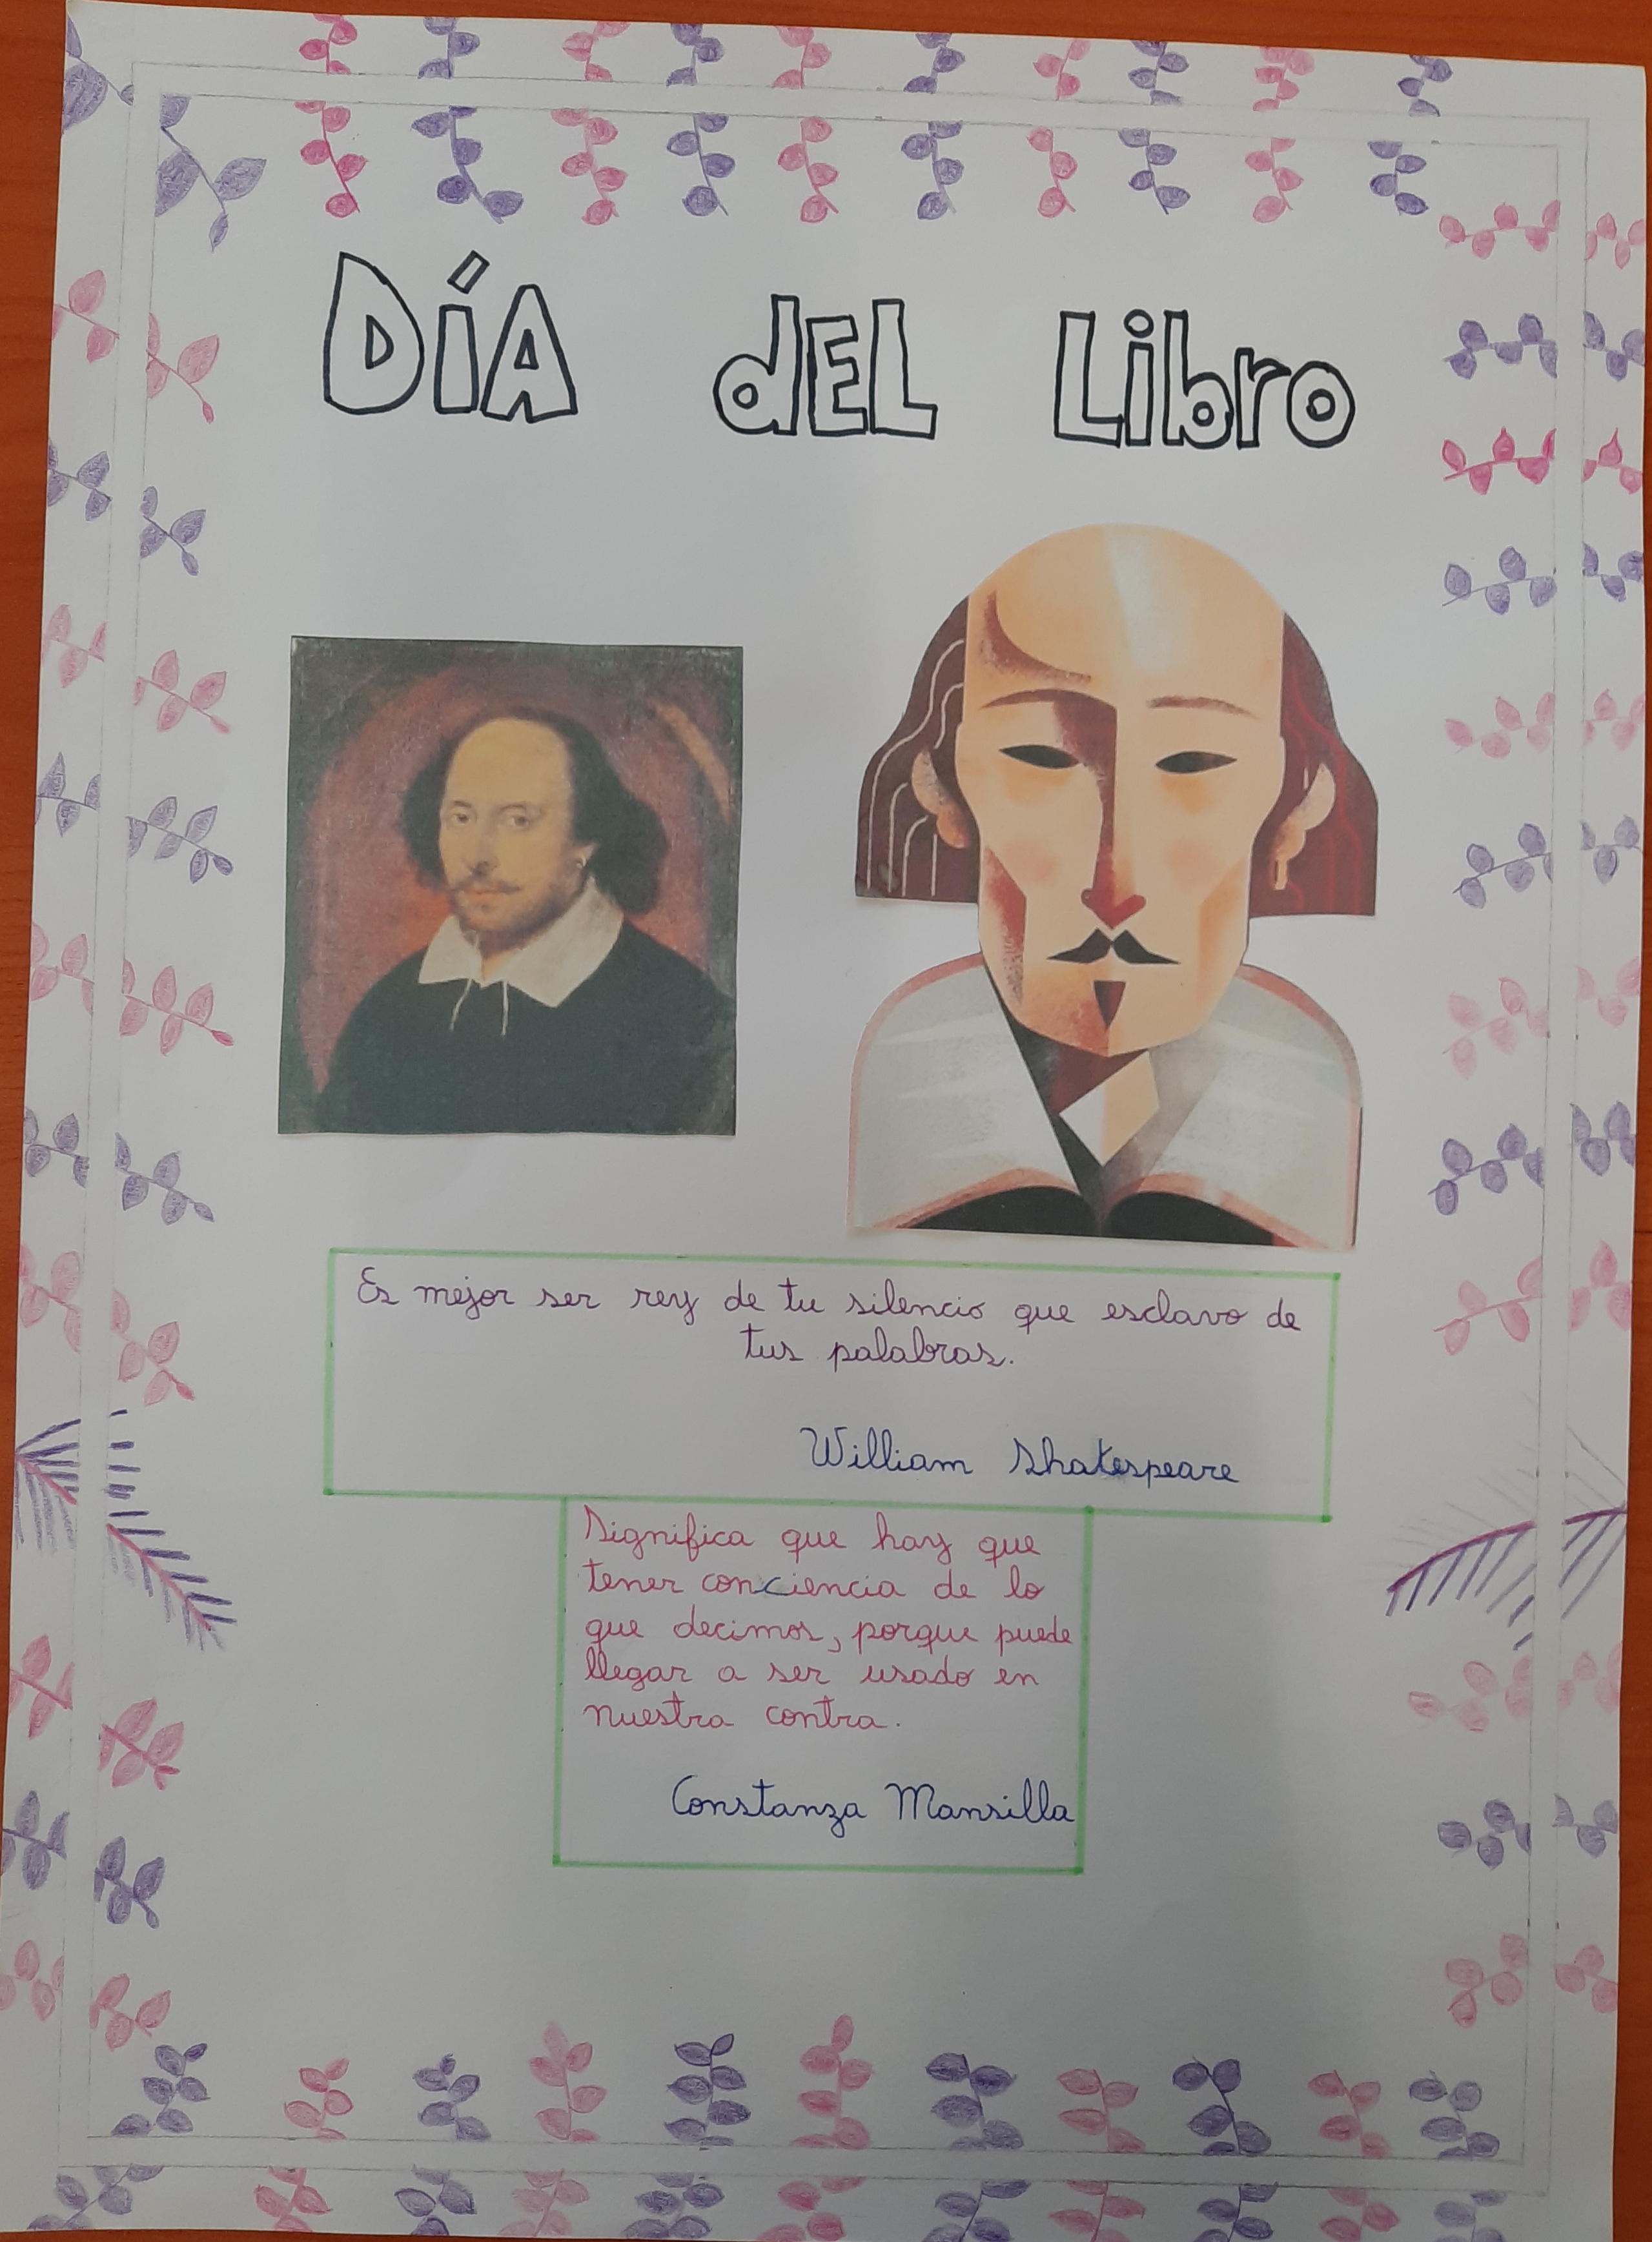 DÍA dEL Libro
Es mejor ser rey de tu silencio que esclavo de
tus palabras.
William Shakespeare
Significa que hay que
tener conciencia de lo
que decimos, porque puede
llegar a ser usado en
nuestra contra.
Constanza Mansilla